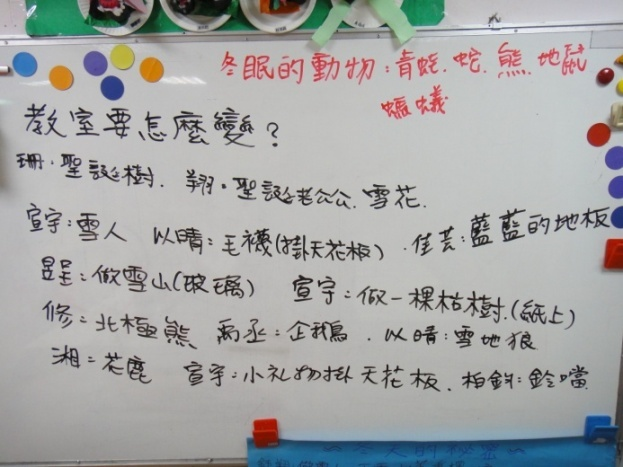 冬眠的動物:青蛙.蛇.熊.地鼠
螞蟻
教室要怎麼變?
珊.聖誕樹. 翔.聖誕老公公.雪花.
宣宇:雪人 以晴:毛襪(掛天花板).佳芸:藍藍的地板
昱呈:做雪山(玻璃) 宣宇:做一棵枯樹.(紙上)
修:北極熊 禹丞:企鵝.以晴:雪地狼
湘:花鹿 宣宇:小礼物掛天花板.柏鈞:鈴噹
~冬天的秘密~